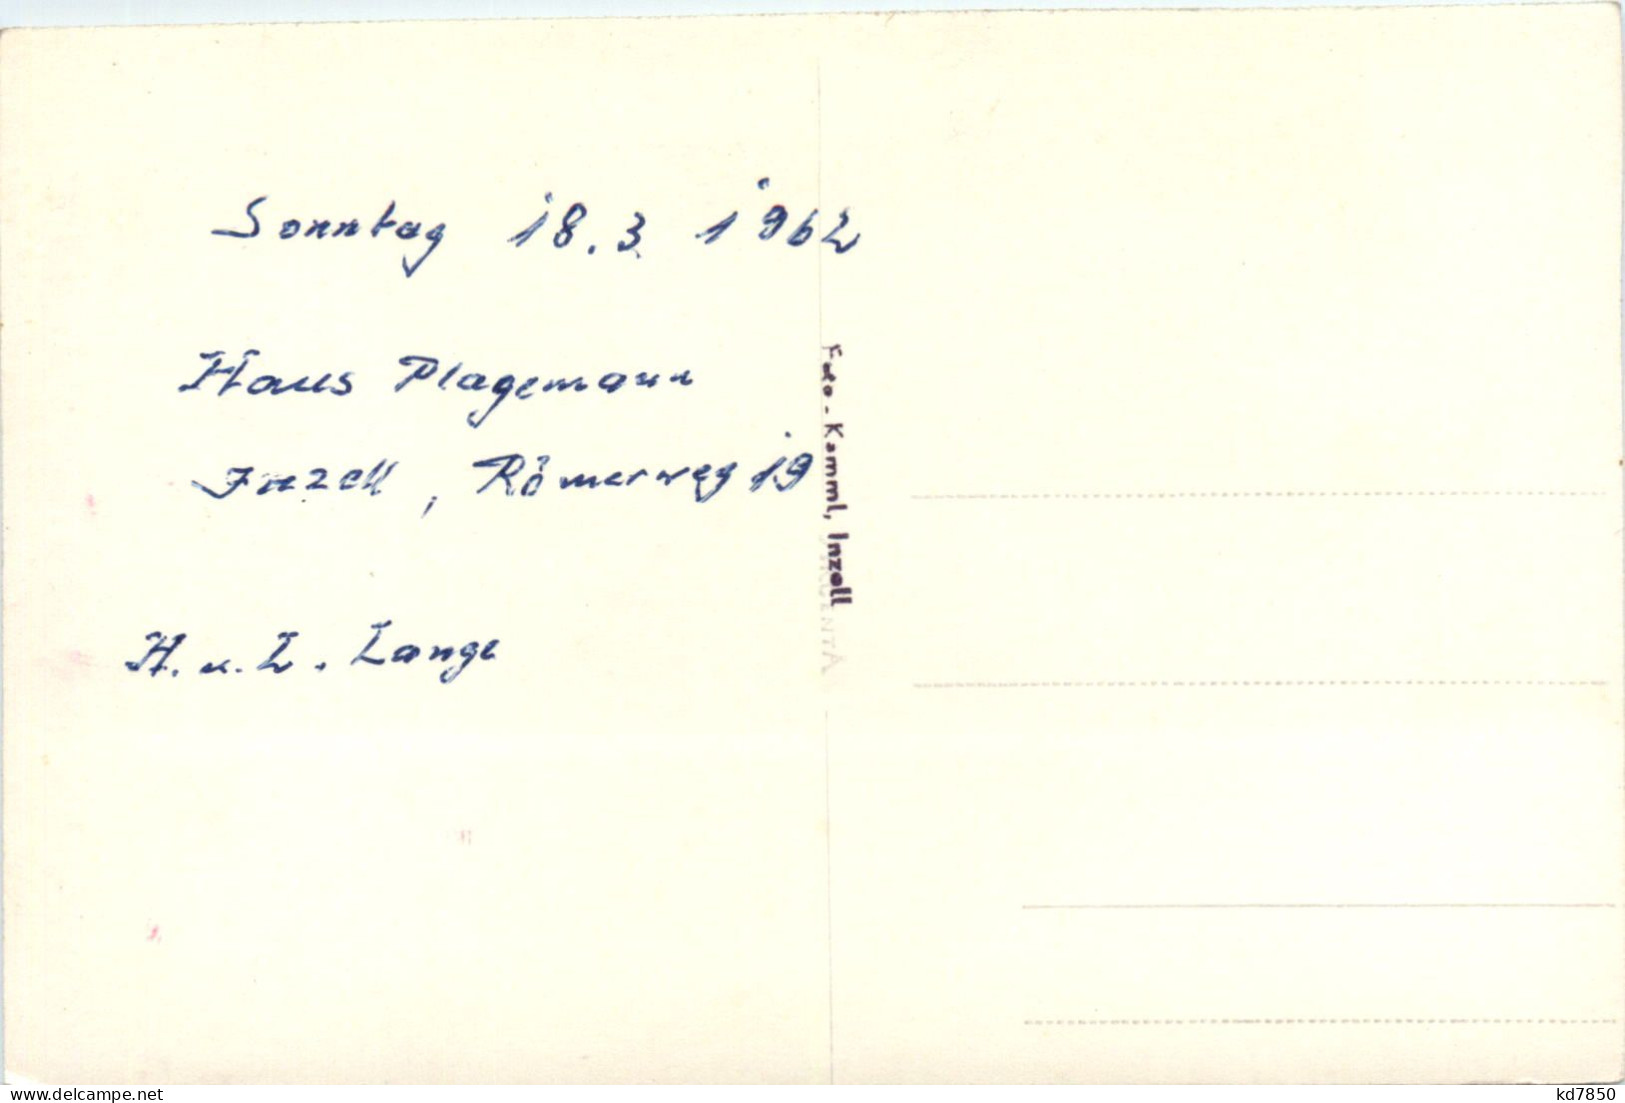 Sonntag 18.3 1962
Haus Plagemann
Inzell, Römerweg 19
H. u. L. Lange
Foto-Kamml, Inzell
delcampe.net
kd7850